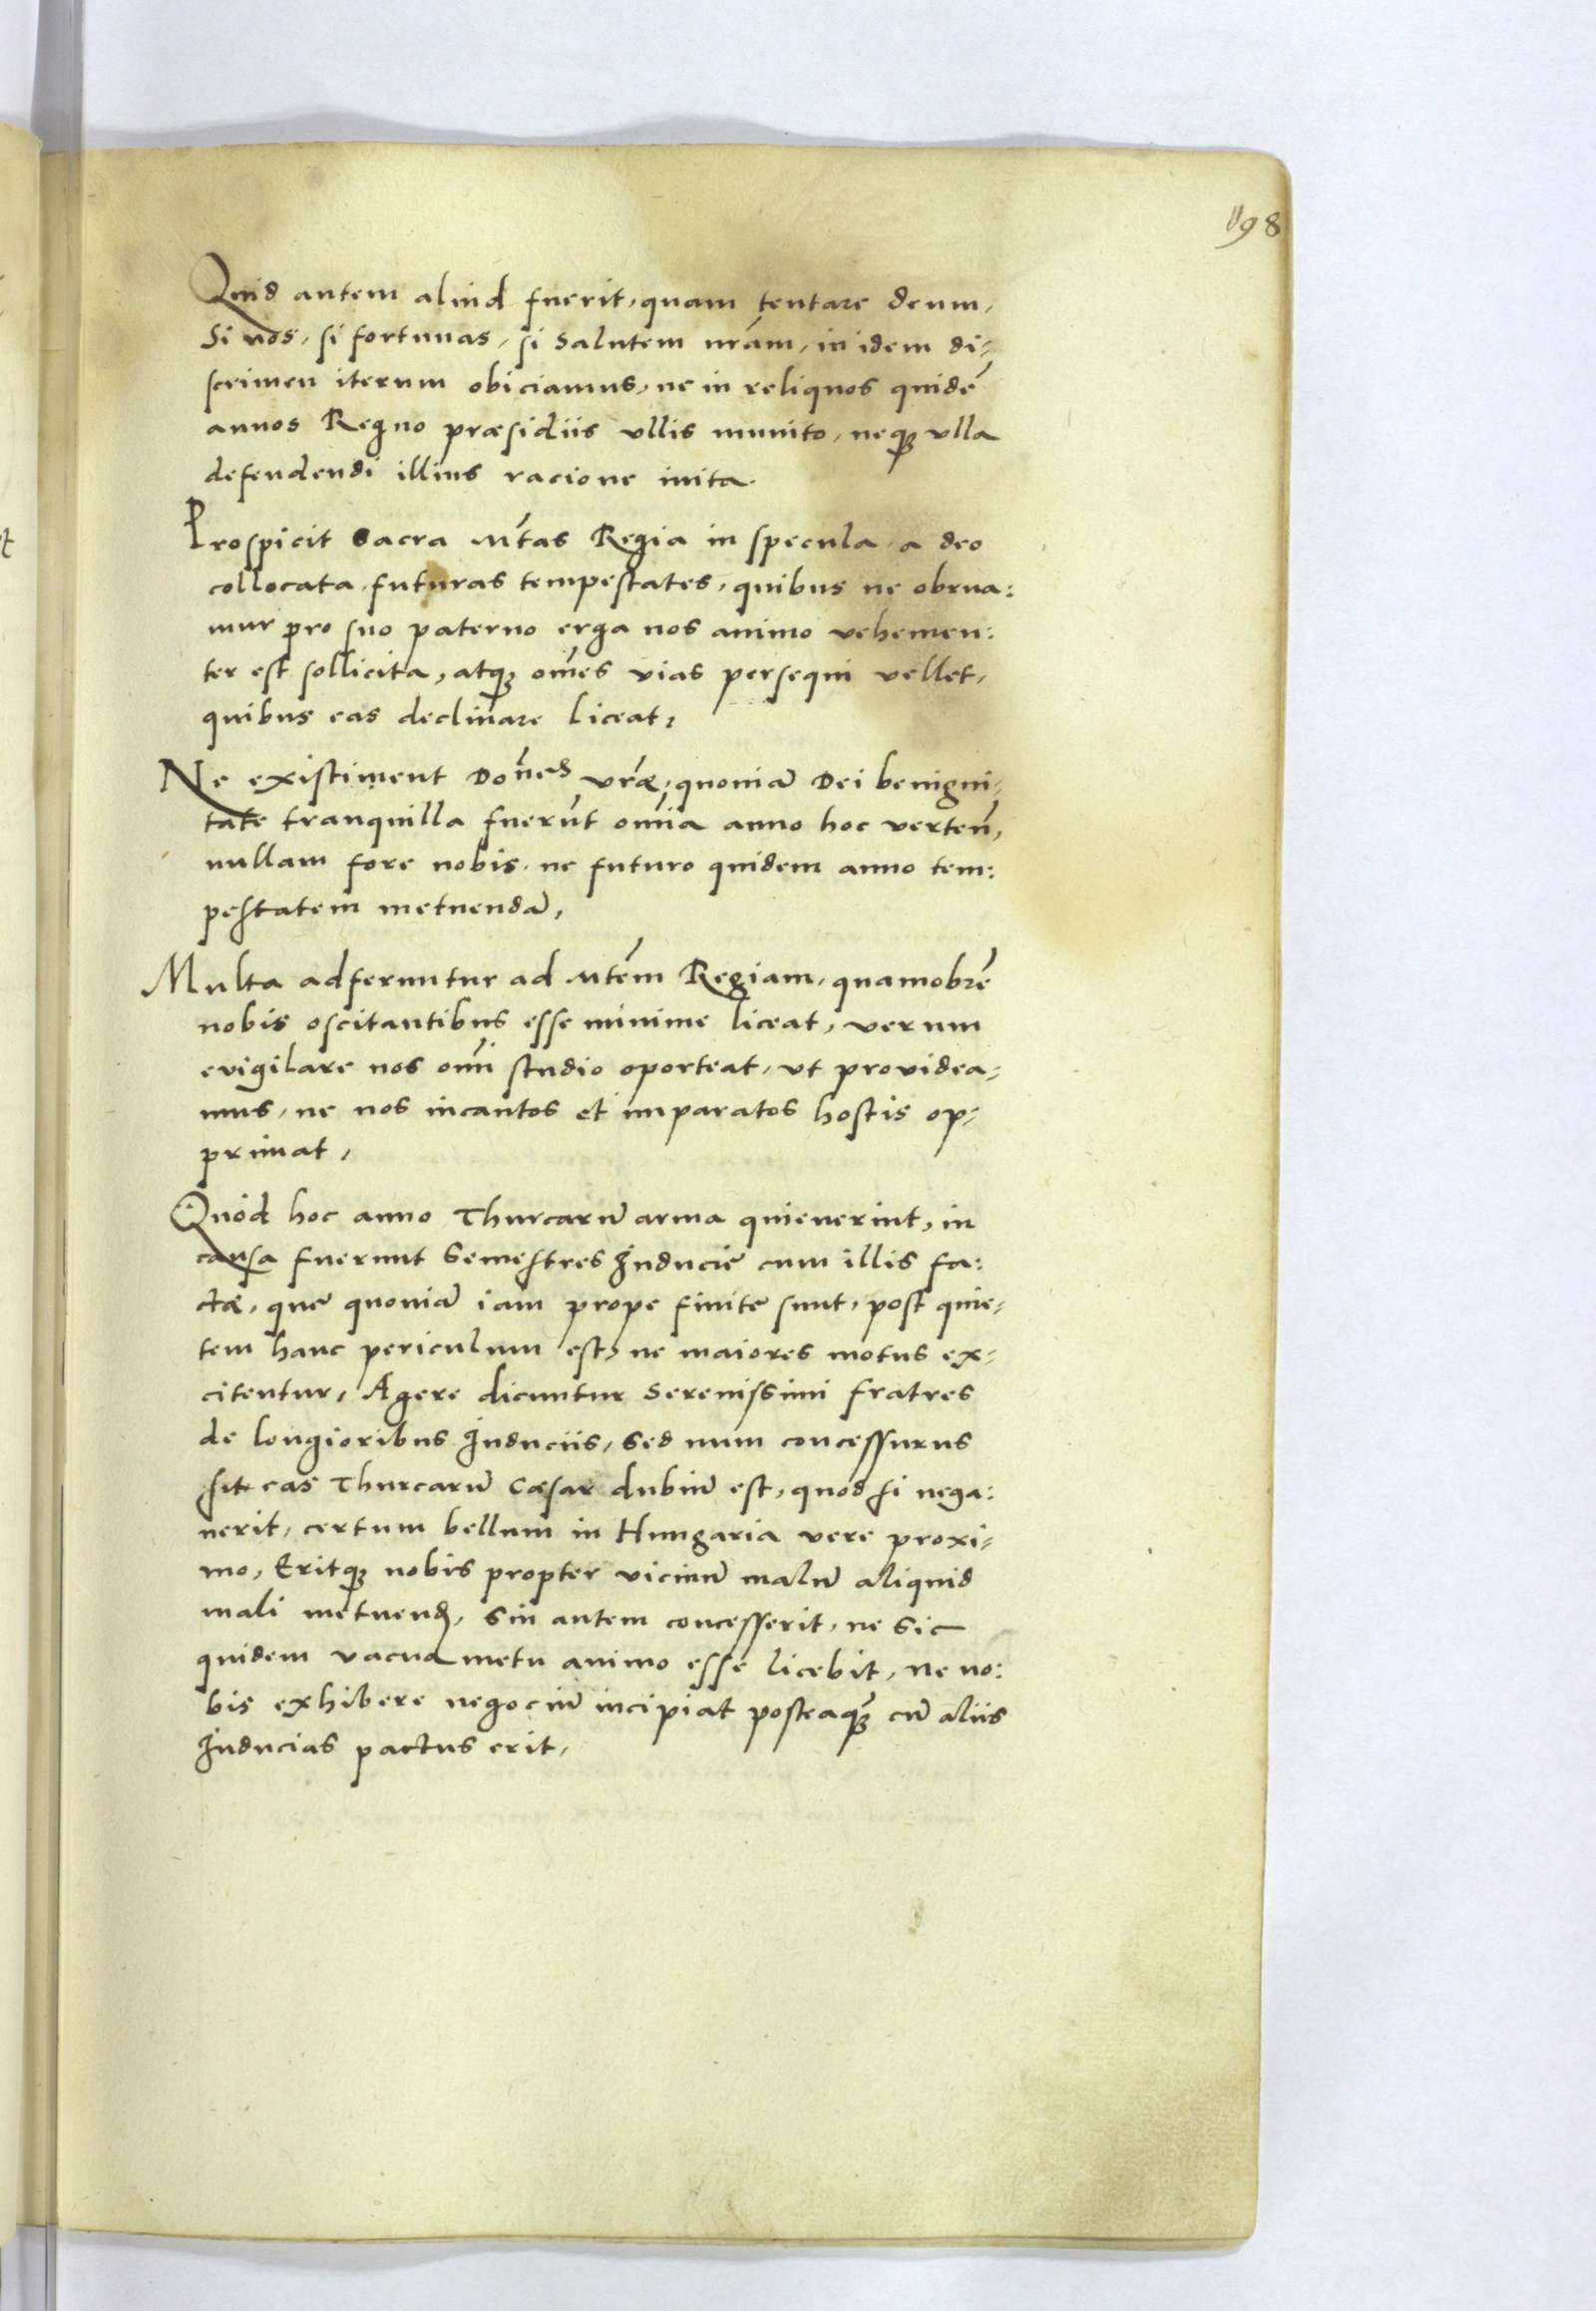 198
Quid autem aliud fuerit, quam tentare deum,
Si nos, si fortunas, si salutem nrãm, in idem di-
scrimen iterum obiciamus, ne in reliquos quidẽ
annos Regno præsidiis vllis munito, neqȝ vlla
defendendi illius racione inita.
Prospicit Sacra Mtãs Regia in specula a deo
collocata futuras tempestates, quibus ne obrua:
mur pro suo paterno erga nos animo vehemen:
ter est sollicita, atqȝ oẽs vias persequi vellet,
quibus eas declinare liceat,
Ne existiment Do͞nes vrãe, quoniã Dei benigni-
tate tranquilla fuerũt om̃ia anno hoc verteñ,
nullam fore nobis ne futuro quidem anno tem:
pestatem metuendã,
Multa adferuntur ad Mtẽm Regiam, quamobrẽ
nobis oscitantibus esse minime liceat, verum
evigilare nos om̃i studio oporteat, vt providea-
mus, ne nos incautos et imparatos hostis op-
primat,
Quòd hoc anno Thurcarũ arma quieuerint, in
causa fuerunt Semestres Inducię cum illis fa:
ctæ, quę quoniã iam prope finitę sunt, post quie-
tem hanc periculum est, ne maiores motus ex-
citentur, Agere dicuntur Serenissimi fratres
de longioribus Induciis, sed num concessurus
sit eas Thurcarũ Cæsar dubiũ est, quod si nega:
uerit, certum bellum in Hungaria vere proxi-
mo, Eritqȝ nobis propter vicinũ malũ aliquid
mali metuend, Sin autem concesserit, ne sic
quidem vacua metu animo esse licebit, ne no:
bis exhibere negociũ incipiat posteaqȝ̃ cũ aliis
Inducias pactus erit,